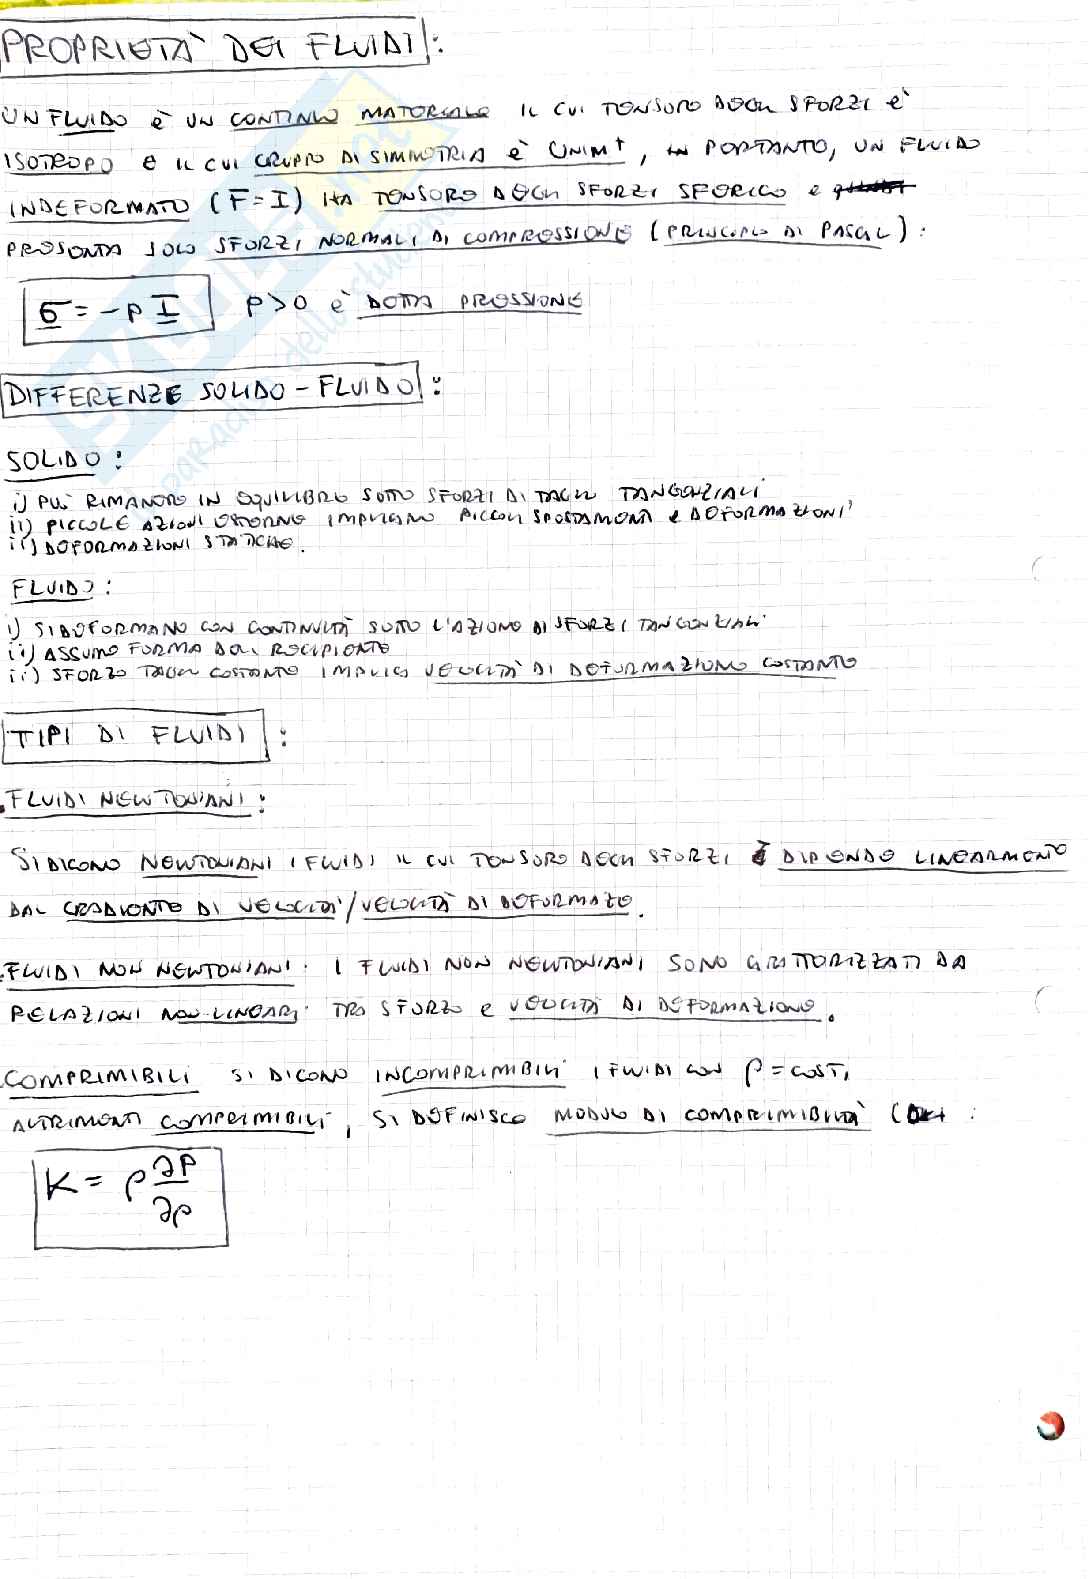 PROPRIETÀ DEI FLUIDI:
UN FLUIDO è UN CONTINUO MATERIALE IL CUI TENSORE DEGLI SFORZI è
ISOTROPO E IL CUI GRUPPO DI SIMMETRIA è UNIM+, PERTANTO, UN FLUIDO
INDEFORMATO (F=I) HA TENSORE DEGLI SFORZI SFERICO e
PRESENTA SOLO SFORZI NORMALI DI COMPRESSIONE (PRINCIPIO DI PASCAL):
σ = -p I p>0 è DETTA PRESSIONE
DIFFERENZE SOLIDO-FLUIDO:
SOLIDO:
i) PUÒ RIMANERE IN EQUILIBRO SOTTO SFORZI DI TAGLIO TANGENZIALI
ii) PICCOLE AZIONI ESTERNE IMPLICANO PICCOLI SPOSTAMENTI e DEFORMAZIONI
iii) DEFORMAZIONI STATICHE.
FLUIDO:
i) SI DEFORMANO CON CONTINUITÀ SOTTO L'AZIONE DI SFORZI TANGENZIALI
ii) ASSUME FORMA DEL RECIPIENTE
iii) SFORZO TAGLIO COSTANTE IMPLICA VELOCITÀ DI DEFORMAZIONE COSTANTE
TIPI DI FLUIDI:
FLUIDI NEWTONIANI:
SI DICONO NEWTONIANI I FLUIDI IL CUI TENSORE DEGLI SFORZI DIPENDE LINEARMENTE
DAL GRADIENTE DI VELOCITÀ/VELOCITÀ DI DEFORMAZE.
FLUIDI NON NEWTONIANI: I FLUIDI NON NEWTONIANI SONO CARATTERIZZATI DA
RELAZIONI NON LINEARI TRA SFORZO e VELOCITÀ DI DEFORMAZIONE.
COMPRIMIBILI SI DICONO INCOMPRIMIBILI I FLUIDI CON ρ = COST,
ALTRIMENTI COMPRIMIBILI, SI DEFINISCE MODULO DI COMPRIMIBILITÀ :
K = ρ ∂P/∂ρ
SKUOLA.net
paradiso dello studente